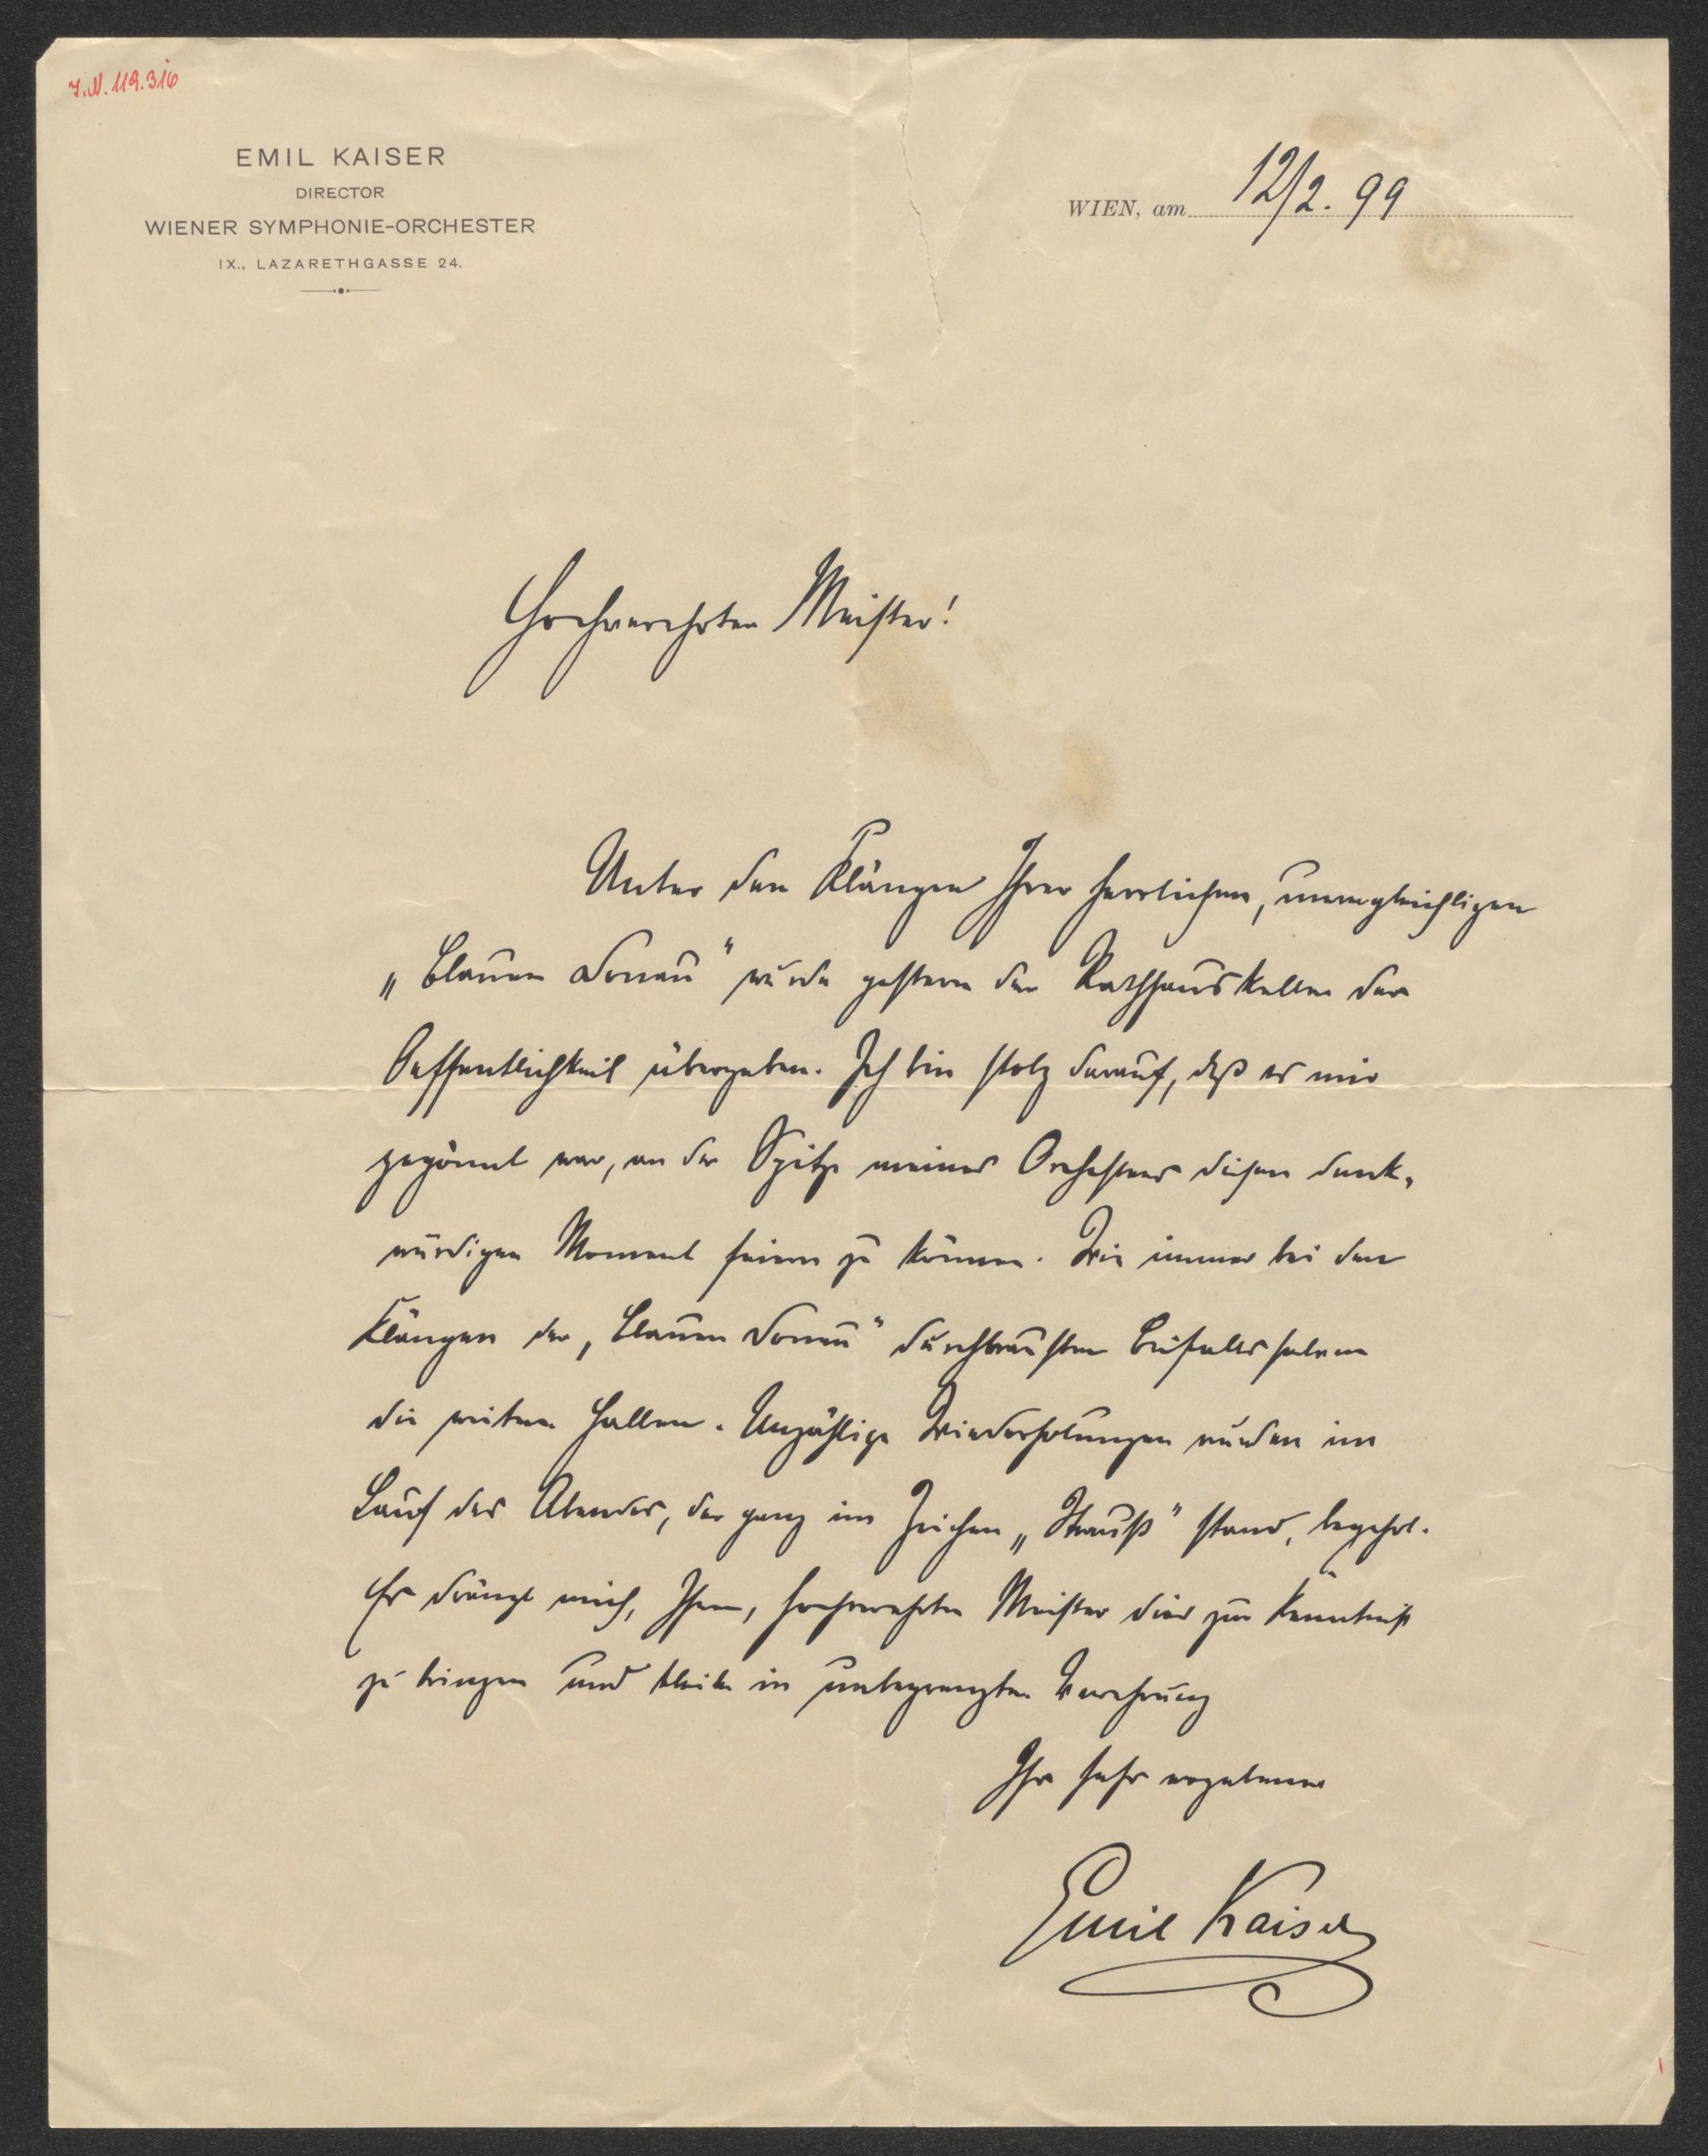 I.N. 119.316
EMIL KAISER
DIRECTOR
WIENER SYMPHONIE-ORCHESTER
IX., LAZARETHGASSE 24.
WIEN, am 12/2. 99
Hochverehrter Meister!
Unter den Klängen Ihrer herrlichen, unvergleichlichen
„blauen Donau" wurde gestern der Rathhauskeller der
Oeffentlichkeit übergeben. Ich bin stolz darauf, daß es mir
gegönnt war, an der Spitze meines Orchesters diesen denk-
würdigen Moment feiern zu können. Wie immer bei den
Klängen der „blauen Donau" durchbrausten Beifallssalven
die weiten Hallen. Unzählige Wiederholungen wurden im
Lauf des Abendes, der ganz im Zeichen „Strauß" stand, begehrt.
Es drängt mich, Ihnen, hochverehrter Meister dies zur Kenntniß
zu bringen und bleibe in unbegrenzter Verehrung
Ihr sehr ergebener
Emil Kaiser